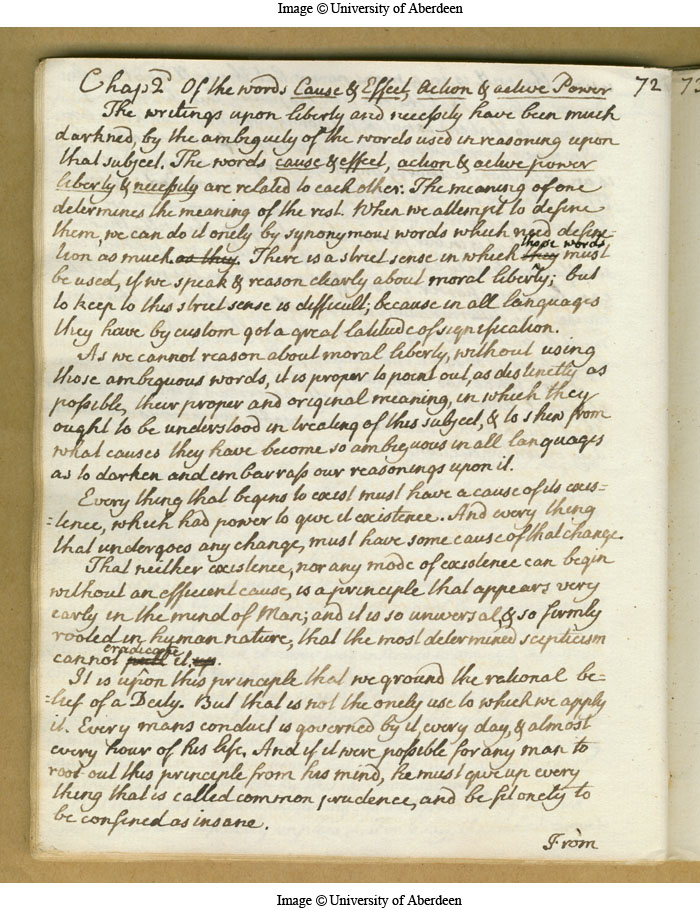 Image © University of Aberdeen
Chap 2d Of the words Cause & Effect, Action & active Power 72 73
The writings upon liberty and necessity have been much
darkned, by the ambiguity of the words used in reasoning upon
that subject. The words cause & effect, action & active power
liberty & necessity are related to each other: The meaning of one
determines the meaning of the rest. When we attempt to define
them, we can do it onely by synonymous words which need defini-
tion as much as they. There is a strict sense in which they those words must
be used, if we speak & reason clearly about moral liberty; but
to keep to this strict sense is difficult; because in all languages
they have by custom got a great latitude of signification.
As we cannot reason about moral liberty, without using
those ambiguous words, it is proper to point out, as distinctly as
possible, their proper and original meaning, in which they
ought to be understood in treating of this subject, & to shew from
what causes they have become so ambiguous in all languages
as to darken and embarrass our reasonings upon it.
Every thing that begins to exist must have a cause of its exis-
-tence, which had power to give it existence. And every thing
that undergoes any change, must have some cause of that change.
That neither existence, nor any mode of existence can begin
without an efficient cause, is a principle that appears very
early in the mind of Man; and it is so universal, & so firmly
rooted in human nature, that the most determined scepticism
cannot pull eradicate it up.
It is upon this principle that we ground the rational be-
-lief of a Deity. But that is not the onely use to which we apply
it. Every mans conduct is governed by it, every day, & almost
every hour of his life. And if it were possible for any man to
root out this principle from his mind, he must give up every
thing that is called common prudence, and be fit onely to
be confined as insane.
From
Image © University of Aberdeen